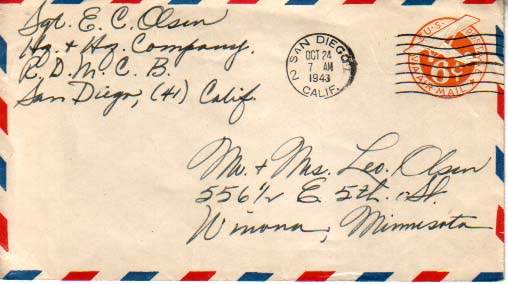 Sgt. E. C. Olsen
Hq. & Hq. Company.
R. D. M. C. B.
San Diego, (41) Calif.
SAN DIEGO
2
OCT 24
7 AM
1943
CALIF.
U.S. POSTAGE
6¢
VIA AIR MAIL
Mr. & Mrs. Leo. Olsen
556 1/2 E. 5th. St.
Winona, Minnesota